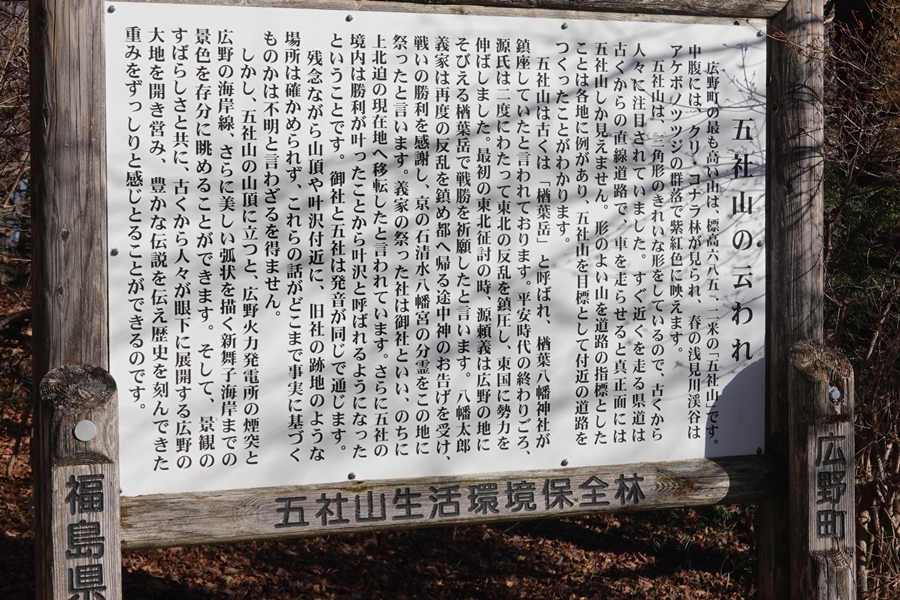 五社山の云われ
広野町の最も高い山は、標高六八五、二米の「五社山」です。
中腹には、クリ、コナラ林が見られ、春の浅見川渓谷は
アケボノツツジの群落で紫紅色に映えます。
五社山は、三角形のきれいな形をしているので、古くから
人々に注目されていました。すぐ近くを走る県道は
古くからの直線道路で、車を走らせると真正面には
五社山しか見えません。形のよい山を道路の指標とした
ことは各地に例があり、五社山を目標として付近の道路を
つくったことがわかります。
五社山は古くは「楢葉岳」と呼ばれ、楢葉八幡神社が
鎮座していたと言われております。平安時代の終わりごろ、
源氏は二度にわたって東北の反乱を鎮圧し、東国に勢力を
伸ばしました。最初の東北征討の時、源頼義は広野の地に
そびえる楢葉岳で戦勝を祈願したと言います。八幡太郎
義家は再度の反乱を鎮め都へ帰る途中神のお告げを受け、
戦いの勝利を感謝し、京の石清水八幡宮の分霊をこの地に
祭ったと言います。義家の祭った社は御社といい、のちに
上北迫の現在地へ移転したと言われています。さらに五社の
境内は勝利が叶ったことから叶沢と呼ばれるようになった
ということです。御社と五社は発音が同じで通じます。
残念ながら山頂や叶沢付近に、旧社の跡地のような
場所は確かめられず、これらの話がどこまで事実に基づく
ものかは不明と言わざるを得ません。
しかし、五社山の山頂に立つと、広野火力発電所の煙突と
広野の海岸線、さらに美しい弧状を描く新舞子海岸までの
景色を存分に眺めることができます。そして、景観の
すばらしさと共に、古くから人々が眼下に展開する広野の
大地を開き営み、豊かな伝説を伝え歴史を刻んできた
重みをずっしりと感じとることができるのです。
五社山生活環境保全林
広野町
福島県